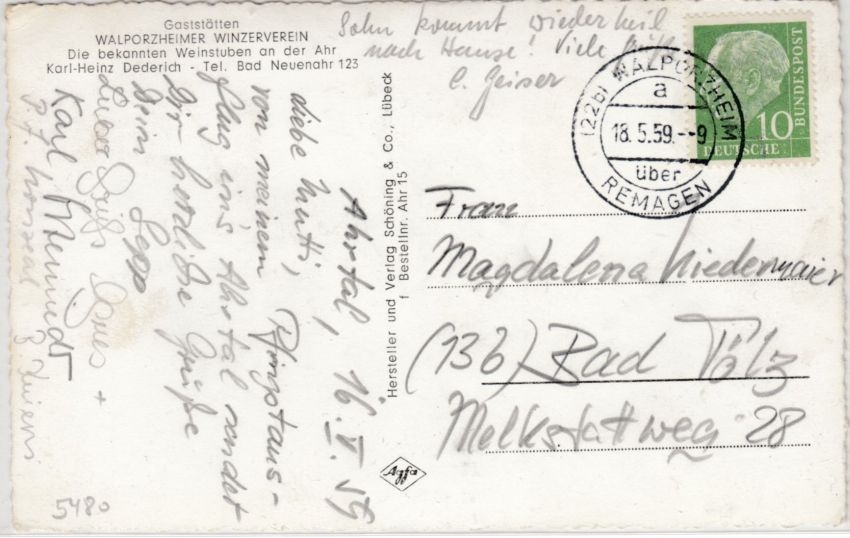 Gaststätten
WALPORZHEIMER WINZERVEREIN
Die bekannten Weinstuben an der Ahr
Karl-Heinz Dederich - Tel. Bad Neuenahr 123
Sohn kommt wieder heil
nach Hause! Viele
C. Geiser
DEUTSCHE BUNDESPOST
10
(22b) WALPORZHEIM
a
18.5.59.--9
über
REMAGEN
Ahrtal, 16.V.59
Liebe Mutti,
von meinem Pfingstaus-
flug ins Ahrtal sendet
Dir herzliche Grüße
Dein Sepp
Agnes +
Karl
Hersteller und Verlag Schöning & Co., Lübeck
f Bestellnr. Ahr 15
Frau
Magdalena Niedermaier
(13b) Bad Tölz
Melkstattweg 28
Agfa
5480